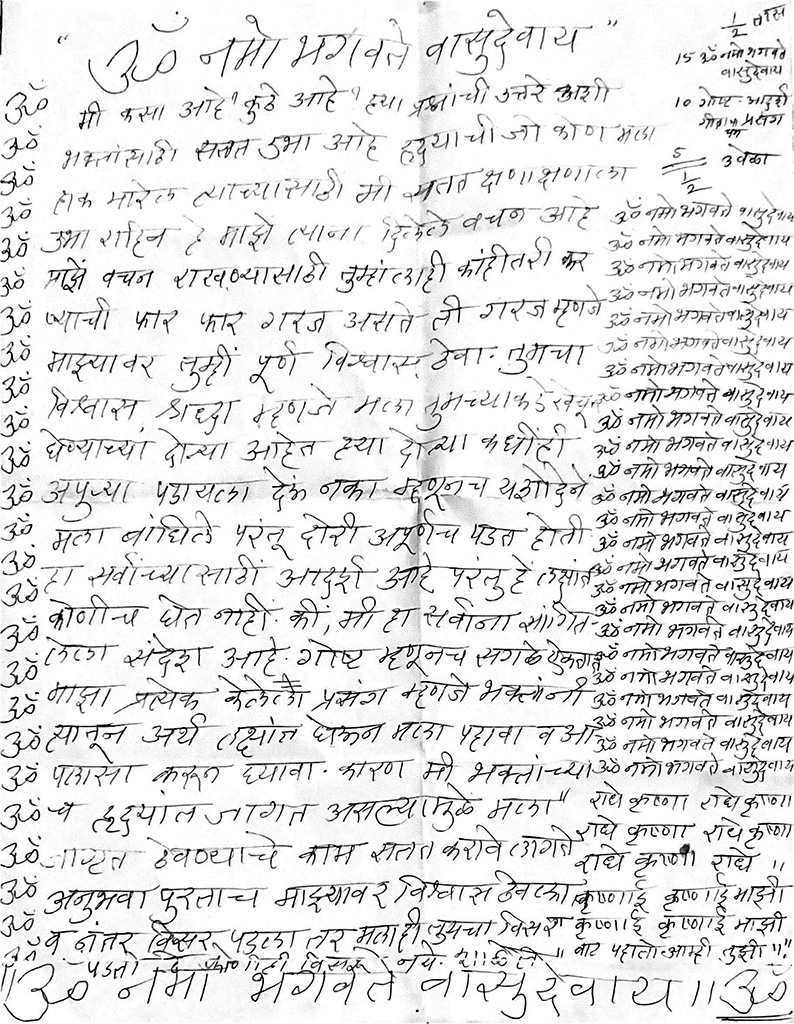 " ॐ नमो भगवते वासुदेवाय "
ॐ मी कसा आहे? कुठे आहे? ह्या प्रश्नांची उत्तरे अशी
ॐ भक्तांसाठी सतत उभा आहे हृद्याची जो कोण मला
ॐ हाक मारेल त्याच्यासाठी मी सतत क्षणाक्षणाला
ॐ उभा राहिन हे माझे त्याना दिलेले वचन आहे
ॐ माझे वचन राखण्यासाठी तुम्हांलाही कांहीतरी कर
ॐ ण्याची फार फार गरज असते ती गरज म्हणजे
ॐ माझ्यावर तुम्हीं पूर्ण विश्वास ठेवा. तुमचा
ॐ विश्वास श्रध्दा म्हणजे मला तुमच्याकडे खेचून
ॐ घेण्याच्यां दोऱ्या आहेत ह्या दोऱ्या कधींही
ॐ अपुऱ्या पडायला देऊ नका म्हणूनच यशोदेने
ॐ मला बांधिले परंतू दोरी अपूर्णच पडत होती
ॐ हा सर्वांच्यासाठीं आदर्श आहे परंतु हे लक्षांत
ॐ कोणीच घेत नाहीं. कीं, मी हा सर्वांना सांगित
ॐ लेला संदेश आहे. गोष्ट म्हणूनच सगळे ऐकतात
ॐ माझा प्रत्येक केलेला प्रसंग म्हणजे भक्तांनी
ॐ त्यातून अर्थ लक्ष्यांत घेऊन मला पहावा व आ
ॐ पलासा करून घ्यावा. कारण मी भक्तांच्या
ॐ च हृद्यांत जागत असल्यामुळे मला"
ॐ जागृत ठेवण्याचे काम सतत करावे लागते
ॐ अनुभवा पुरताच माझ्यावर विश्वास ठेवला
ॐ व नंतर विसर पडला तर मलाही तुमचा विसर
ॐ पडतो हे कोणीही विसरू नये.
॥ ॐ नमो भगवते वासुदेवाय ॥ ॐ
1/2 तास
15 ॐ नमो भगवते
वासुदेवाय
10 गोष्ट
प्रसंग
5
1/2
3 वेळा
ॐ नमो भगवते वासुदेवाय
ॐ नमो भगवते वासुदेवाय
ॐ नमो भगवते वासुदेवाय
ॐ नमो भगवते वासुदेवाय
ॐ नमो भगवते वासुदेवाय
ॐ नमो भगवते वासुदेवाय
ॐ नमो भगवते वासुदेवाय
ॐ नमो भगवते वासुदेवाय
ॐ नमो भगवते वासुदेवाय
ॐ नमो भगवते वासुदेवाय
ॐ नमो भगवते वासुदेवाय
ॐ नमो भगवते वासुदेवाय
ॐ नमो भगवते वासुदेवाय
ॐ नमो भगवते वासुदेवाय
ॐ नमो भगवते वासुदेवाय
ॐ नमो भगवते वासुदेवाय
ॐ नमो भगवते वासुदेवाय
ॐ नमो भगवते वासुदेवाय
ॐ नमो भगवते वासुदेवाय
ॐ नमो भगवते वासुदेवाय
ॐ नमो भगवते वासुदेवाय
ॐ नमो भगवते वासुदेवाय
ॐ नमो भगवते वासुदेवाय
ॐ नमो भगवते वासुदेवाय
राधे कृष्णा राधे कृष्णा
राधे कृष्णा राधे कृष्णा
राधे कृष्णा राधे ॥
कृष्णाई कृष्णाई माझी
कृष्णाई कृष्णाई माझी
" वाट पहातो आम्ही तुझी ॥"